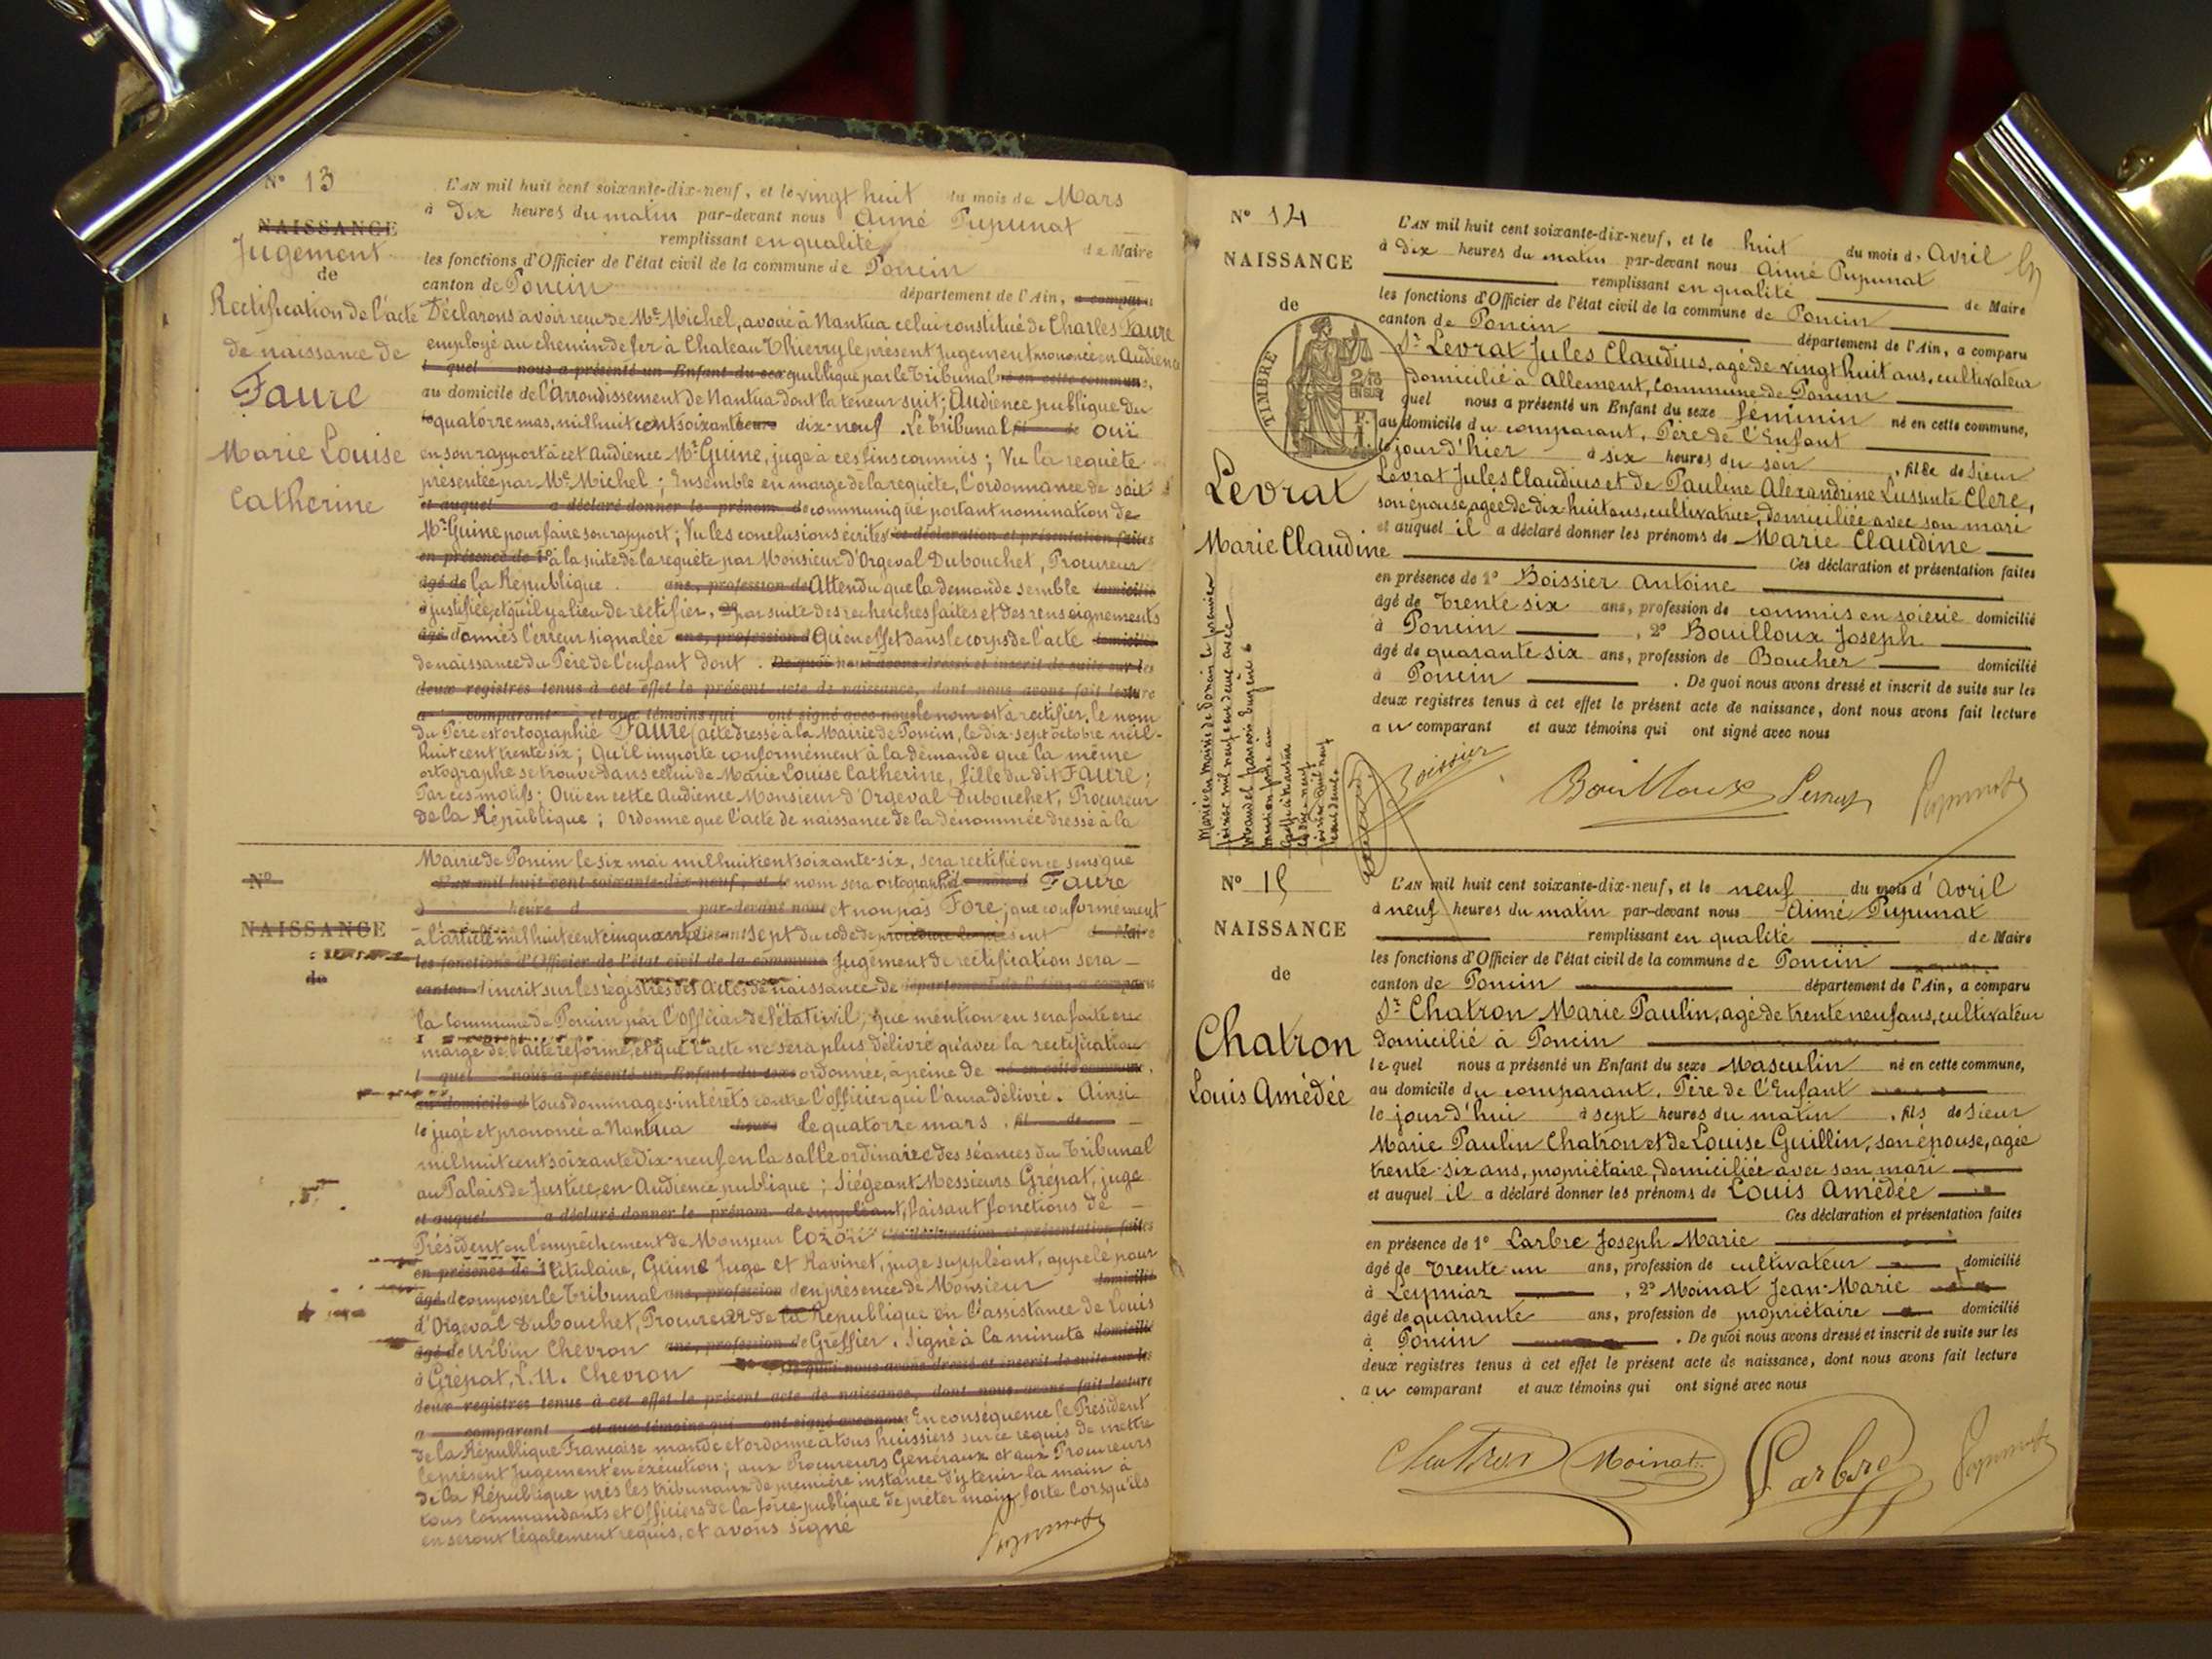 N° 13
NAISSANCE
Jugement
de
Rectification de l'acte
de naissance de
Faure
Marie Louise
Catherine
L'AN mil huit cent soixante-dix-neuf, et le vingt huit du mois de Mars
à Dix heures du matin par-devant nous Aimé Pupunat
remplissant en qualité de Maire
les fonctions d'Officier de l'état civil de la commune de Poncin
canton de Poncin département de l'Ain, a comparu
Déclarons avoir reçu de Me Michel, avoué à Nantua celui constitué de Charles Faure
employé au chemin de fer à Chateau Thierry le présent Jugement prononcé en Audience
l quel nous a présenté un Enfant du sexe publique par le Tribunal né en cette commune,
au domicile de l'Arrondissement de Nantua dont la teneur suit; Audience publique du
quatorze mars, mil huit cent soixante heure dix-neuf. Le Tribunal fil de Oui
en son rapport à cet Audience Mr Guine, juge à ces fins commis; Vu la requête
présentée par Me Michel; Ensemble en marge de la requête, l'ordonnance de soit
et auquel a déclaré donner le prénom de communiqué portant nomination de
Mr Guine pour faire son rapport; Vu les conclusions écrites Ces déclaration et présentation faites
en présence de 1° à la suite de la requête par Monsieur d'Orgeval Dubouchet, Procureur
âgé de la République. ans, profession de Attendu que la demande semble domicilié
à justifiée, et qu'il y a lieu de rectifier, par suite des recherches faites et des renseignements
âgé donnés l'erreur signalée ans, profession d Qu'en effet dans le corps de l'acte domicilié
de naissance du Père de l'enfant dont . De quoi nous avons dressé et inscrit de suite sur les
deux registres tenus à cet effet le présent acte de naissance, dont nous avons fait lecture
a comparant et aux témoins qui ont signé avec nous le nom est à rectifier, le nom
du Père est ortographié Faure (acte dressé à la Mairie de Poncin, le dix-sept octobre mil-
huit cent trente six; Qu'il importe conformément à la demande que la même
ortographe se trouve dans celui de Marie Louise Catherine, fille du dit Faure;
Par ces motifs; Oui en cette Audience Monsieur d'Orgeval Dubouchet, Procureur
de la République; Ordonne que l'acte de naissance de la dénommée dressé à la
Mairie de Poncin le six mai mil huit cent soixante-six, sera rectifié en ce sens que
N°
NAISSANCE
de
L'an mil huit cent soixante-dix-neuf, et le nom sera ortographié mois d Faure
à heure d par-devant nous et non pas Fore; que conformément
à l'article mil huit cent cinquante sept du code de procédure le présent de Maire
les fonctions d'Officier de l'état civil de la commune Jugement de rectification sera
canton d inscrit sur les registres des Actes de naissance de département de l'Ain, a comparu
la Commune de Poncin par l'Officier de l'état civil, que mention en sera faite en
marge de l'acte réformé, et que l'acte ne sera plus délivré qu'avec la rectification
l quel nous a présenté un Enfant du sexe ordonnée, a peine de né en cette commune,
au domicile d tous dommages-intérêts contre l'officier qui l'aura délivré. Ainsi
le jugé et prononcé à Nantua heure le quatorze mars. fil de
mil huit cent soixante dix-neuf en la salle ordinaire des séances du Tribunal
au Palais de Justice, en Audience publique; Siégeant Messieurs Grépat, juge
et auquel a déclaré donner le prénom de suppléant, faisant fonctions de
Président en l'empêchement de Monsieur Ces déclaration et présentation faites
en présence de 1° titulaire, Guine Juge et Ravinet, juge suppléant, appelé pour
âgé de composer le Tribunal ans, profession d en présence de Monsieur domicilié
d'Orgeval Dubouchet, Procureur de la République en l'assistance de Louis
âgé de Urbin Chevron ans, profession de Greffier. Signé à la minute domicilié
à Grépat, L.U. Chevron De quoi nous avons dressé et inscrit de suite sur les
deux registres tenus à cet effet le présent acte de naissance, dont nous avons fait lecture
a comparant et aux témoins qui ont signé avec nous En conséquence le Président
de la République Française mande et ordonne à tous huissiers sur ce requis de mettre
le présent Jugement en exécution; aux Procureurs Généraux et aux Procureurs
de la République près les tribunaux de première instance d'y tenir la main à
tous Commandants et Officiers de la force publique de prêter main forte lorsqu'ils
en seront légalement requis, et avons signé
Pupunat
N° 14
NAISSANCE
de
TIMBRE
Levrat
Marie Claudine
L'AN mil huit cent soixante-dix-neuf, et le huit du mois d' Avril
à Dix heures du matin par-devant nous Aimé Pupunat
remplissant en qualité de Maire
les fonctions d'Officier de l'état civil de la commune de Poncin
canton de Poncin département de l'Ain, a comparu
Sr Levrat Jules Claudius, agé de vingt huit ans, cultivateur
domicilié à Allement, commune de Poncin
le quel nous a présenté un Enfant du sexe féminin né en cette commune,
au domicile du comparant, Père de l'Enfant
le jour d'hier à six heures du soir, fille de Sieur
Levrat Jules Claudius et de Pauline Alexandrine Lusunte Clerc,
son épouse, agée de dix huit ans, cultivatrice, domiciliée avec son mari
et auquel il a déclaré donner les prénoms de Marie Claudine
Ces déclaration et présentation faites
en présence de 1° Boissier Antoine
âgé de Trente six ans, profession de commis en soierie domicilié
à Poncin, 2° Bouilloux Joseph
âgé de quarante six ans, profession de Boucher domicilié
à Poncin . De quoi nous avons dressé et inscrit de suite sur les
deux registres tenus à cet effet le présent acte de naissance, dont nous avons fait lecture
au comparant et aux témoins qui ont signé avec nous
Boissier Bouilloux Levrat Pupunat
N° 15
NAISSANCE
de
Chatron
Louis Amédée
L'AN mil huit cent soixante-dix-neuf, et le neuf du mois d' Avril
à neuf heures du matin par-devant nous Aimé Pupunat
remplissant en qualité de Maire
les fonctions d'Officier de l'état civil de la commune de Poncin
canton de Poncin département de l'Ain, a comparu
Sr Chatron Marie Paulin, agé de trente neuf ans, cultivateur
domicilié à Poncin
le quel nous a présenté un Enfant du sexe Masculin né en cette commune,
au domicile du comparant, Père de l'Enfant
le jour d'hui à sept heures du matin, fils de Sieur
Marie Paulin Chatron et de Louise Guillin, son épouse, agée
trente-six ans, propriétaire, domiciliée avec son mari
et auquel il a déclaré donner les prénoms de Louis Amédée
Ces déclaration et présentation faites
en présence de 1° Larbre Joseph Marie
âgé de Trente un ans, profession de cultivateur domicilié
à Leymiaz, 2° Moinat Jean-Marie
âgé de quarante ans, profession de propriétaire domicilié
à Poncin . De quoi nous avons dressé et inscrit de suite sur les
deux registres tenus à cet effet le présent acte de naissance, dont nous avons fait lecture
au comparant et aux témoins qui ont signé avec nous
Chatron Moinat Larbre Pupunat